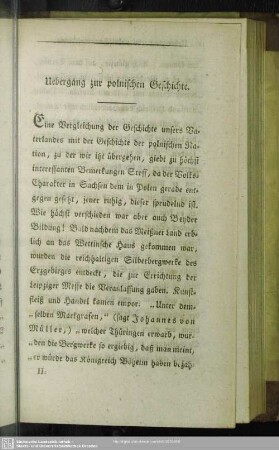 Uebergang zur polnischen Geschichte.
Eine Vergleichung der Geschichte unsers Va-
terlandes mit der Geschichte der polnischen Na-
tion, zu der wir itzt übergehen, giebt zu höchst
interessanten Bemerkungen Stoff, da der Volks-
Charakter in Sachsen dem in Polen gerade ent-
gegen gesetzt, jener ruhig, dieser sprudelnd ist.
Wie höchst verschieden war aber auch Beyder
Bildung! Bald nachdem das Meißner Land erb-
lich an das Wettinsche Haus gekommen war,
wurden die reichhaltigen Silberbergwerke des
Erzgebirges entdeckt, die zur Errichtung der
Leipziger Messe die Veranlassung gaben. Kunst-
fleiß und Handel kamen empor. „Unter dem-
„selben Markgrafen,“ (sagt Johannes von
Müller,) „welcher Thüringen erwarb, wur-
„den die Bergwerke so ergiebig, daß man meint,
„er würde das Königreich Böheim haben bezah-
II.